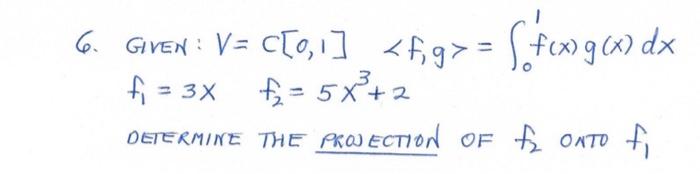 6. GIVEN: V= C[0,1] <f,g> = ∫₀¹ f(x) g(x) dx
f₁ = 3x f₂ = 5x³+2
DETERMINE THE PROJECTION OF f₂ ONTO f₁